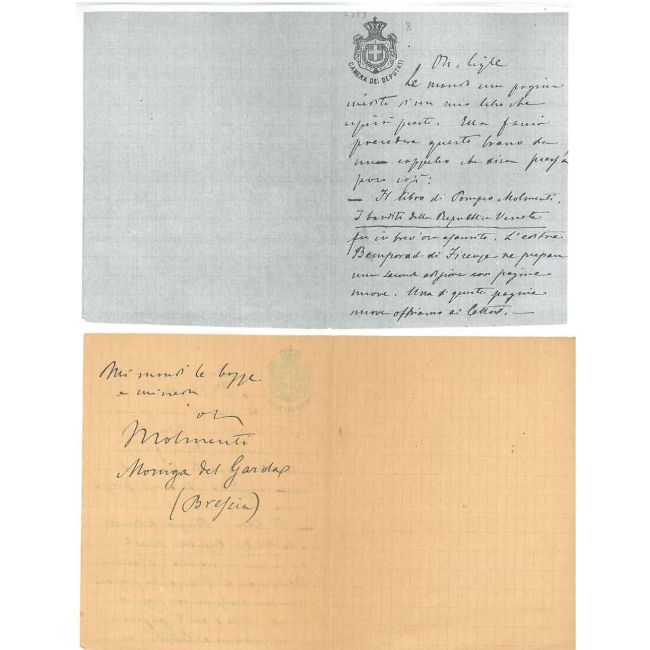 8
CAMERA DEI DEPUTATI
On.
Le mando una pagina
inedita di un mio libro che
uscirà presto. Ella faccia
precedere questo brano da
un cappello che dica press'a
poco così:
— Il libro di Pompeo Molmenti,
I banditi della Repubblica Veneta
fu in brev'ora esaurito. L'editore
Bemporad di Firenze ne prepara
una seconda edizione con pagine
nuove. Una di queste pagine
nuove offriamo ai lettori. —
Mi mandi le bozze
e mi creda
Molmenti
Moniga del Garda
(Brescia)